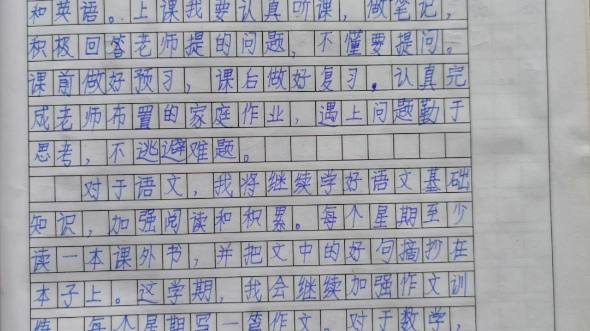 和英语。上课我要认真听课，做笔记，
积极回答老师提的问题，不懂要提问。
课前做好预习，课后做好复习。认真完
成老师布置的家庭作业，遇上问题勤于
思考，不逃避难题。
对于语文，我将继续学好语文基础
知识，加强阅读和积累。每个星期至少
读一本课外书，并把文中的好句摘抄在
本子上。这学期，我会继续加强作文训
练，每个星期写一篇作文。对于数学，